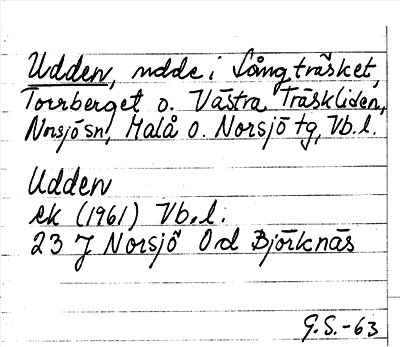 Udden, udde i Långträsket,
Torrberget o. Västra Träskliden,
Norsjö sn, Malå o. Norsjö tg, Vb.l.
Udden
ek (1961) Vb.l.
23 J Norsjö Ord Björknäs
G.S.-63